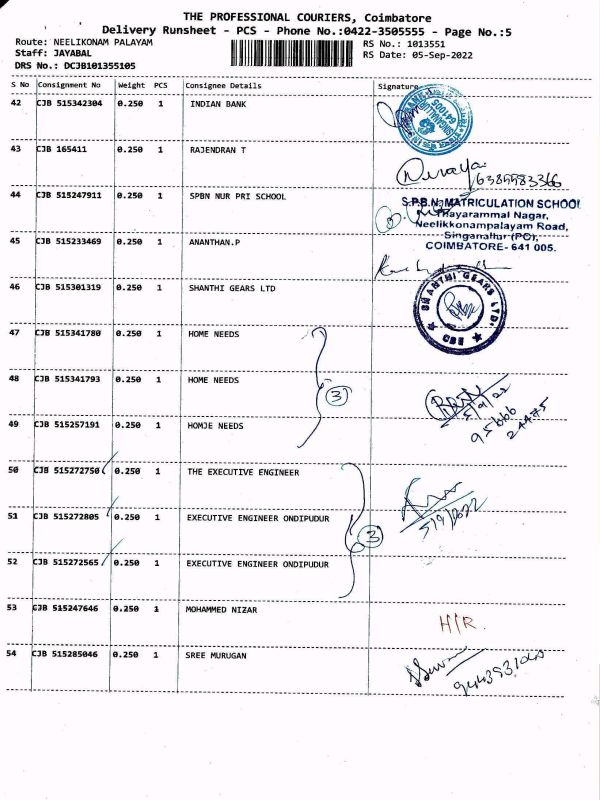 THE PROFESSIONAL COURIERS, Coimbatore
Delivery Runsheet - PCS - Phone No.:0422-3505555 - Page No.:5
Route: NEELIKONAM PALAYAM
Staff: JAYABAL
DRS No.: DCJB101355105
RS No.: 1013551
RS Date: 05-Sep-2022
S No Consignment No Weight PCS Consignee Details Signature
42 CJB 515342304 0.250 1 INDIAN BANK
641005
43 CJB 165411 0.250 1 RAJENDRAN T
6385583366
44 CJB 515247911 0.250 1 SPBN NUR PRI SCHOOL
S.P.B.N. MATRICULATION SCHOOL
Thayarammal Nagar,
Neelikkonampalayam Road,
Singanallur (PO),
COIMBATORE- 641 005.
45 CJB 515233469 0.250 1 ANANTHAN.P
46 CJB 515301319 0.250 1 SHANTHI GEARS LTD
SHANTHI GEARS LTD.
CBE
47 CJB 515341780 0.250 1 HOME NEEDS
48 CJB 515341793 0.250 1 HOME NEEDS
3
5/9/22
95666
24475
49 CJB 515257191 0.250 1 HOMJE NEEDS
50 CJB 515272750 0.250 1 THE EXECUTIVE ENGINEER
51 CJB 515272805 0.250 1 EXECUTIVE ENGINEER ONDIPUDUR
3
5/9/2022
52 CJB 515272565 0.250 1 EXECUTIVE ENGINEER ONDIPUDUR
53 CJB 515247646 0.250 1 MOHAMMED NIZAR
H/R.
54 CJB 515285046 0.250 1 SREE MURUGAN